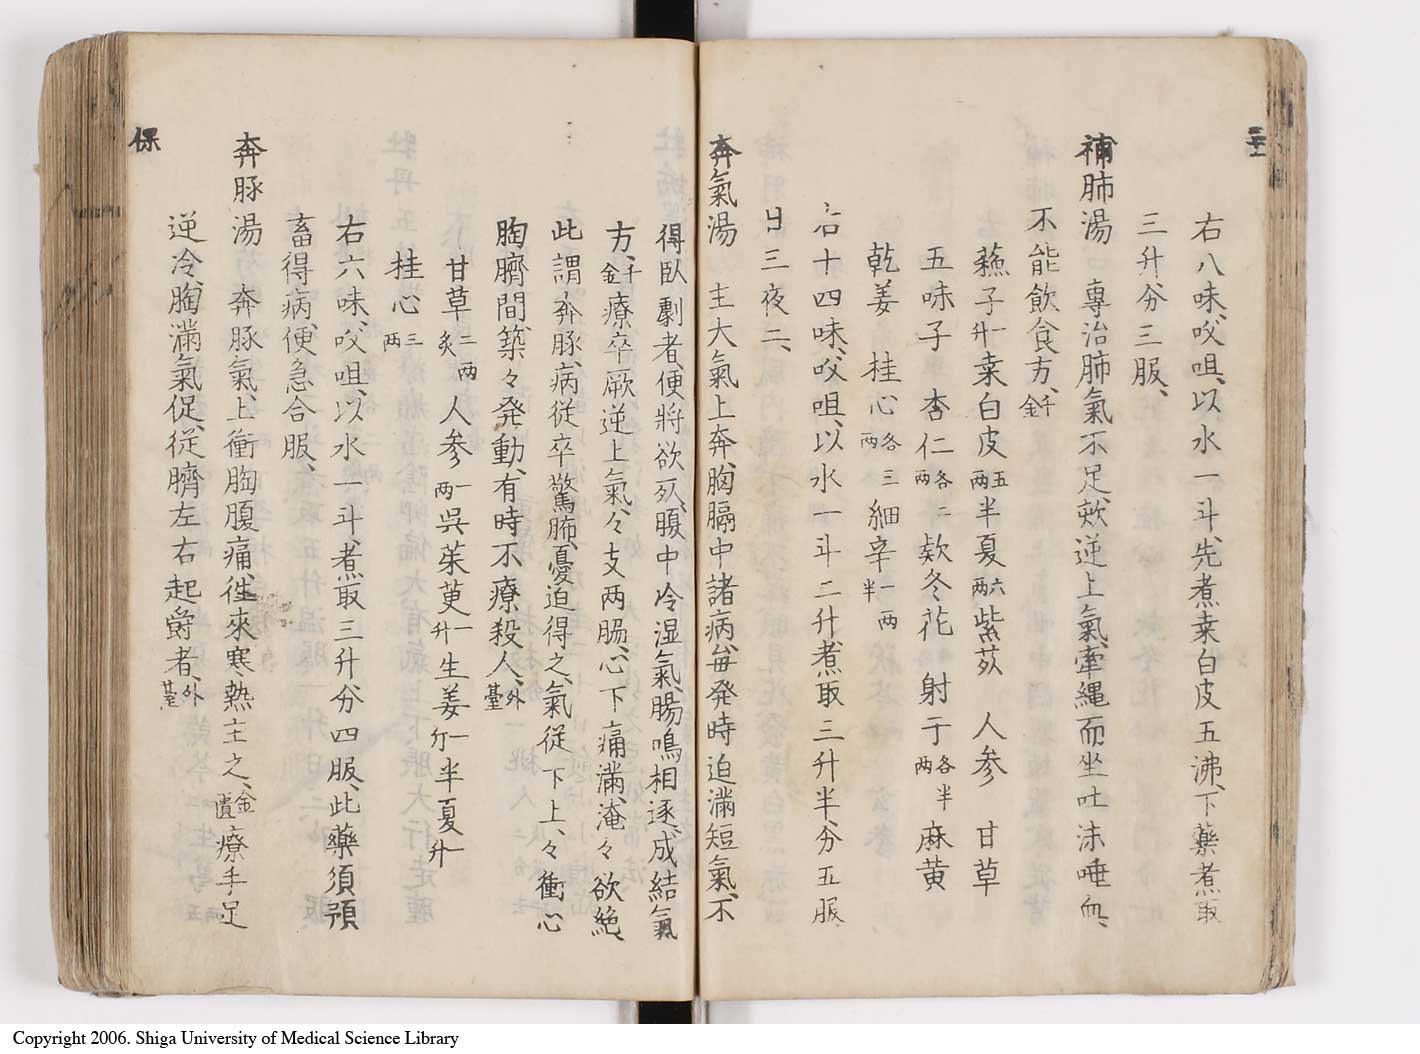 右八味、㕮咀、以水一斗、先煮桒白皮五沸、下藥煮取
三升、分三服、
補肺湯 專治肺氣不足、欬逆上氣、牽縄而坐吐沫唾血、
不能飲食方、千金
蘓子一升桒白皮五両半夏六両紫苑 人参 甘草
五味子 杏仁各二両欵冬花 射干各半両麻黄
乾姜 桂心各三両細辛一両半
右十四味、㕮咀、以水一斗二升、煮取三升半、分五服
日三夜二、
奔氣湯 主大氣上奔、胸膈中諸病、毎発時迫満短氣、不
得臥、劇者、便将欲死、腹中冷湿氣、腸鳴相逐、成結氣
方、千金療卒厥逆上氣、々支両脇、心下痛満、淹々欲絶、
此謂奔豚、病従卒驚怖、憂迫得之、氣従下上、々衝心
胸臍間、築々発動、有時不療殺人、外臺
甘草二両炙人参一両呉茱萸一升生姜一斤半夏一升
桂心三両
右六味、㕮咀、以水一斗、煮取三升、分四服、此藥須預
畜、得病、便急合服、
奔豚湯 奔豚氣、上衝胸腹痛、徃來寒熱主之、金匱療手足
逆冷、胸満氣促、従臍左右起欝者、外臺
保